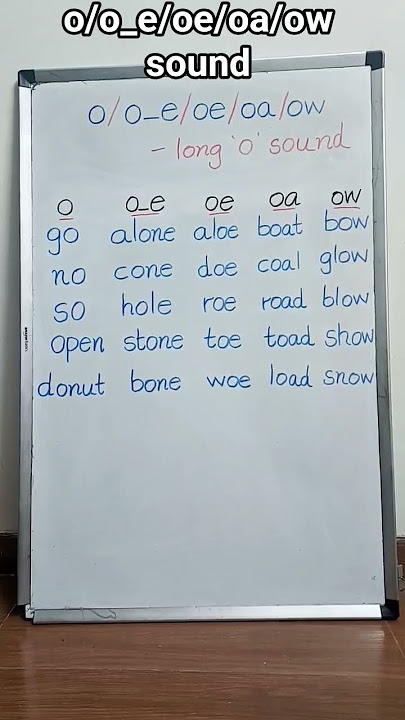 o/o_e/oe/oa/ow
sound
o/o_e/oe/oa/ow
- long 'o' sound
o o_e oe oa ow
go alone aloe boat bow
no cone doe coal glow
so hole roe road blow
open stone toe toad show
donut bone woe load snow